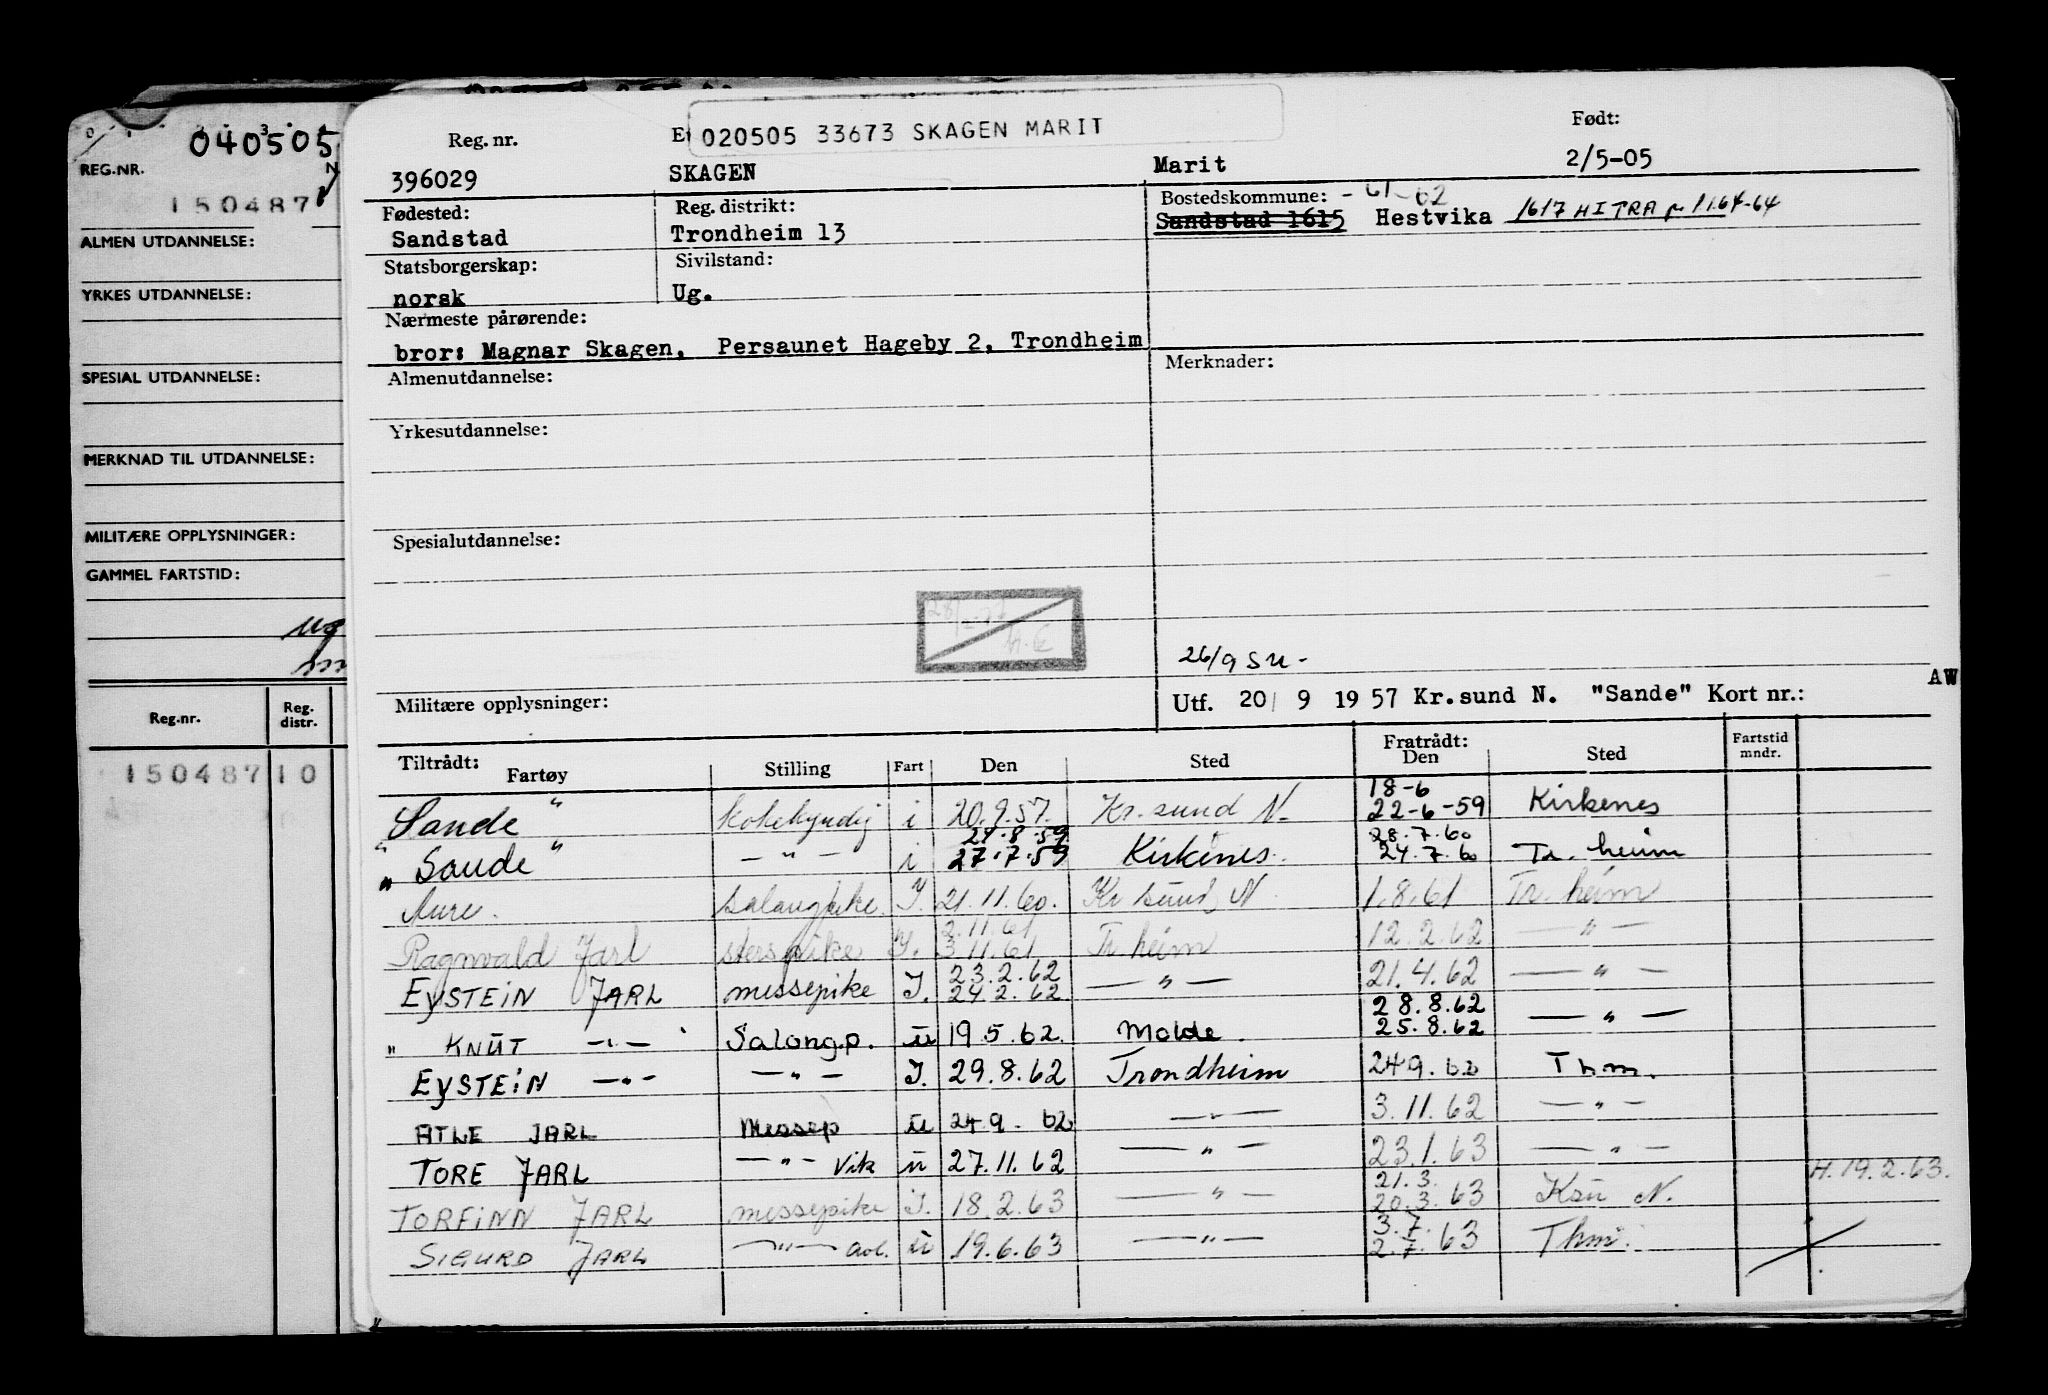 040505
REG.NR.
N
150487
ALMEN UTDANNELSE:
YRKES UTDANNELSE:
SPESIAL UTDANNELSE:
MERKNAD TIL UTDANNELSE:
MILITÆRE OPPLYSNINGER:
GAMMEL FARTSTID:
Reg.nr. Reg. distr.
150487 10
020505 33673 SKAGEN MARIT
Reg. nr. E Født:
396029 SKAGEN Marit 2/5-05
Fødested: Reg. distrikt: Bostedskommune: - 61-62
Sandstad Trondheim 13 Sandstad 1615 Hestvika 1617 HITRA 11.64-64
Statsborgerskap: Sivilstand:
norsk Ug.
Nærmeste pårørende:
bror: Magnar Skagen, Persaunet Hageby 2, Trondheim
Almenutdannelse: Merknader:
Yrkesutdannelse:
Spesialutdannelse:
26/9 su-
AW
Militære opplysninger: Utf. 20/ 9 1957 Kr.sund N. "Sande" Kort nr.:
Tiltrådt: Fartøy Stilling Fart Den Sted Fratrådt: Den Sted Fartstid mndr.
18-6
Sande " kokekyndig i 20.9.57. Kr. sund N. 22-6-59 Kirkenes
27.8.59 28.7.60
" Sande " — " — i 27.7.59 Kirkenes. 24.7.60 Tr. heim
Aure. salongpike. I. 21.11.60. Kr sund N 1.8.61 Tr. heim
2.11.61
Ragnvald Jarl I. 3.11.61 Tr heim 12.2.62 — " —
23.2.62
EYSTEIN JARL messepike I. 24.2.62 — " — 21.4.62 — " —
28.8.62
" KNUT — " — Salong.p. u 19.5.62. Molde. 25.8.62 — " —
EYSTEIN — " — — " — I. 29.8.62 Trondheim 24.9.62 Thm.
ATLE JARL Messep u 24.9.62 — " — 3.11.62 — " —
TORE JARL — " — Vik u 27.11.62 — " — 23.1.63 — " —
21.3. H.19.2.63.
TORFINN JARL messepike I. 18.2.63 — " — 20.3.63 Ksu N.
3.7.
SIGURD JARL — " — avl. u 19.6.63 — " — 2.7.63 Thm.